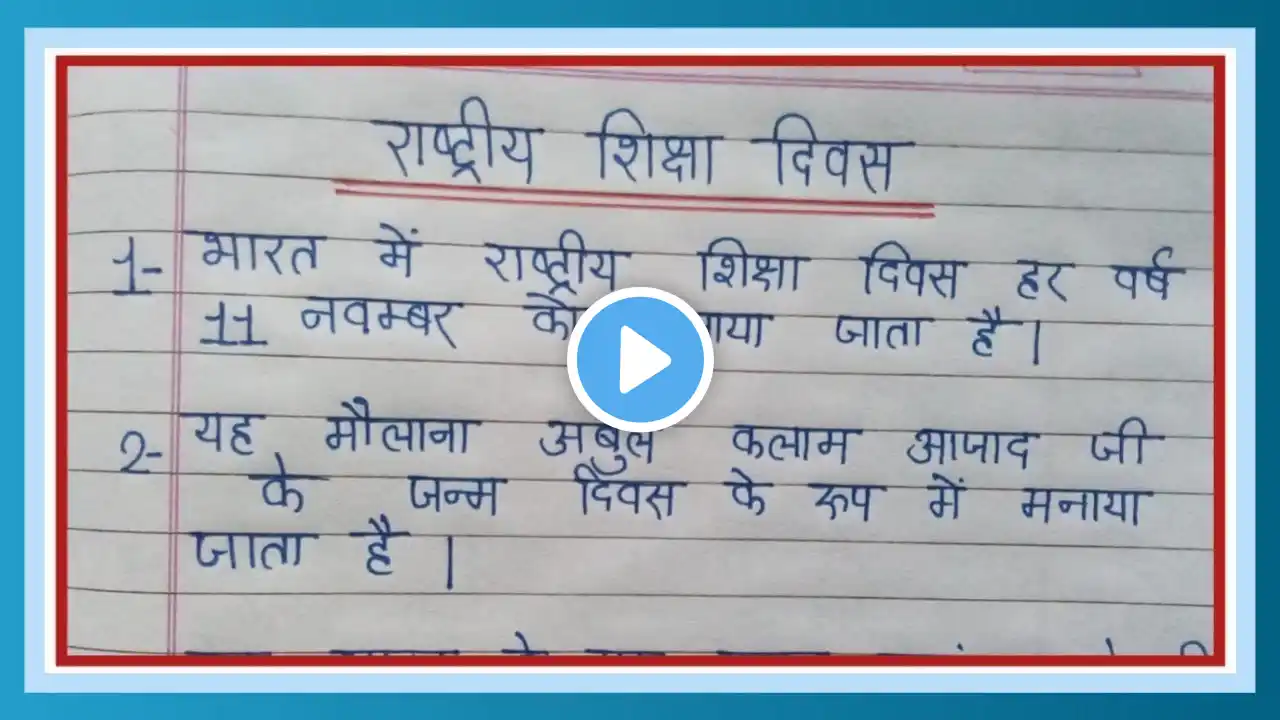 राष्ट्रीय शिक्षा दिवस
1- भारत में राष्ट्रीय शिक्षा दिवस हर वर्ष
11 नवम्बर को जाता है।
2- यह मौलाना अबुल कलाम आजाद जी
के जन्म दिवस के रूप में मनाया
जाता है।